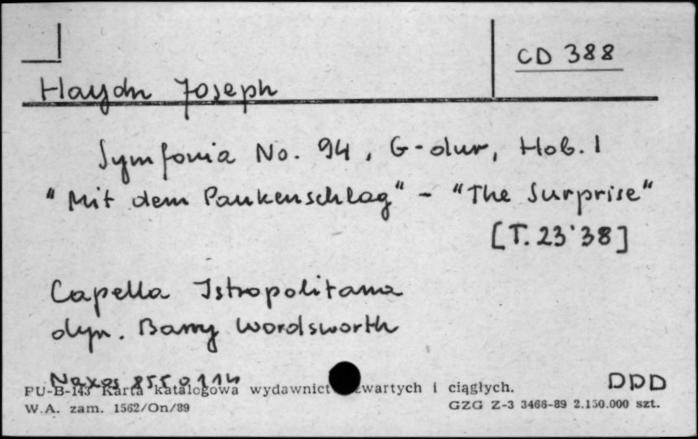 CD 388
Haydn Joseph
Symfonia No. 94, G-dur, Hob. I
"Mit dem Paukenschlag" - "The Surprise"
[T. 23'38]
Capella Istropolitana
dyr. Barry Wordsworth
Naxos 8550114 DDD
PU-B-143 Karta katalogowa wydawnict zwartych i ciągłych.
W.A. zam. 1562/On/89 GZG Z-3 3466-89 2.150.000 szt.